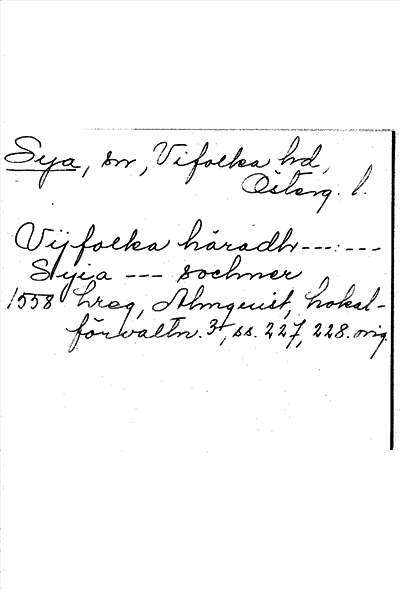 Sya, sn, Vifolka hd,
Österg. l.
Vijfolka häradh --- : ---
Syia --- sochner
1558 hreg, Almquist, Lokal-
förvaltn. 3, ss. 227, 228. orig.